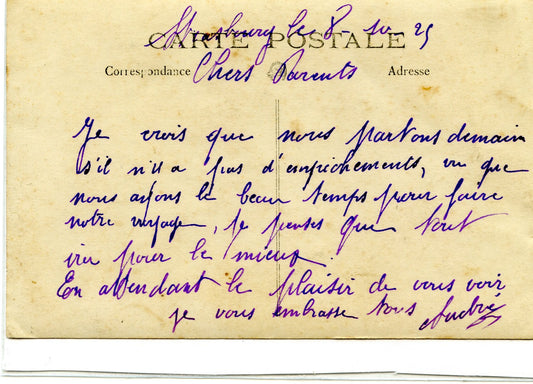 Strasbourg le 8-10-25
CARTE POSTALE
Correspondance Adresse
Chers Parents
Je crois que nous partons demain
s'il n'il a pas d'empêchements, vu que
nous ayons le beau temps pour faire
notre voyage, je penses que tout
ira pour le mieux.
En attendant le plaisir de vous voir
je vous embrasse tous
André